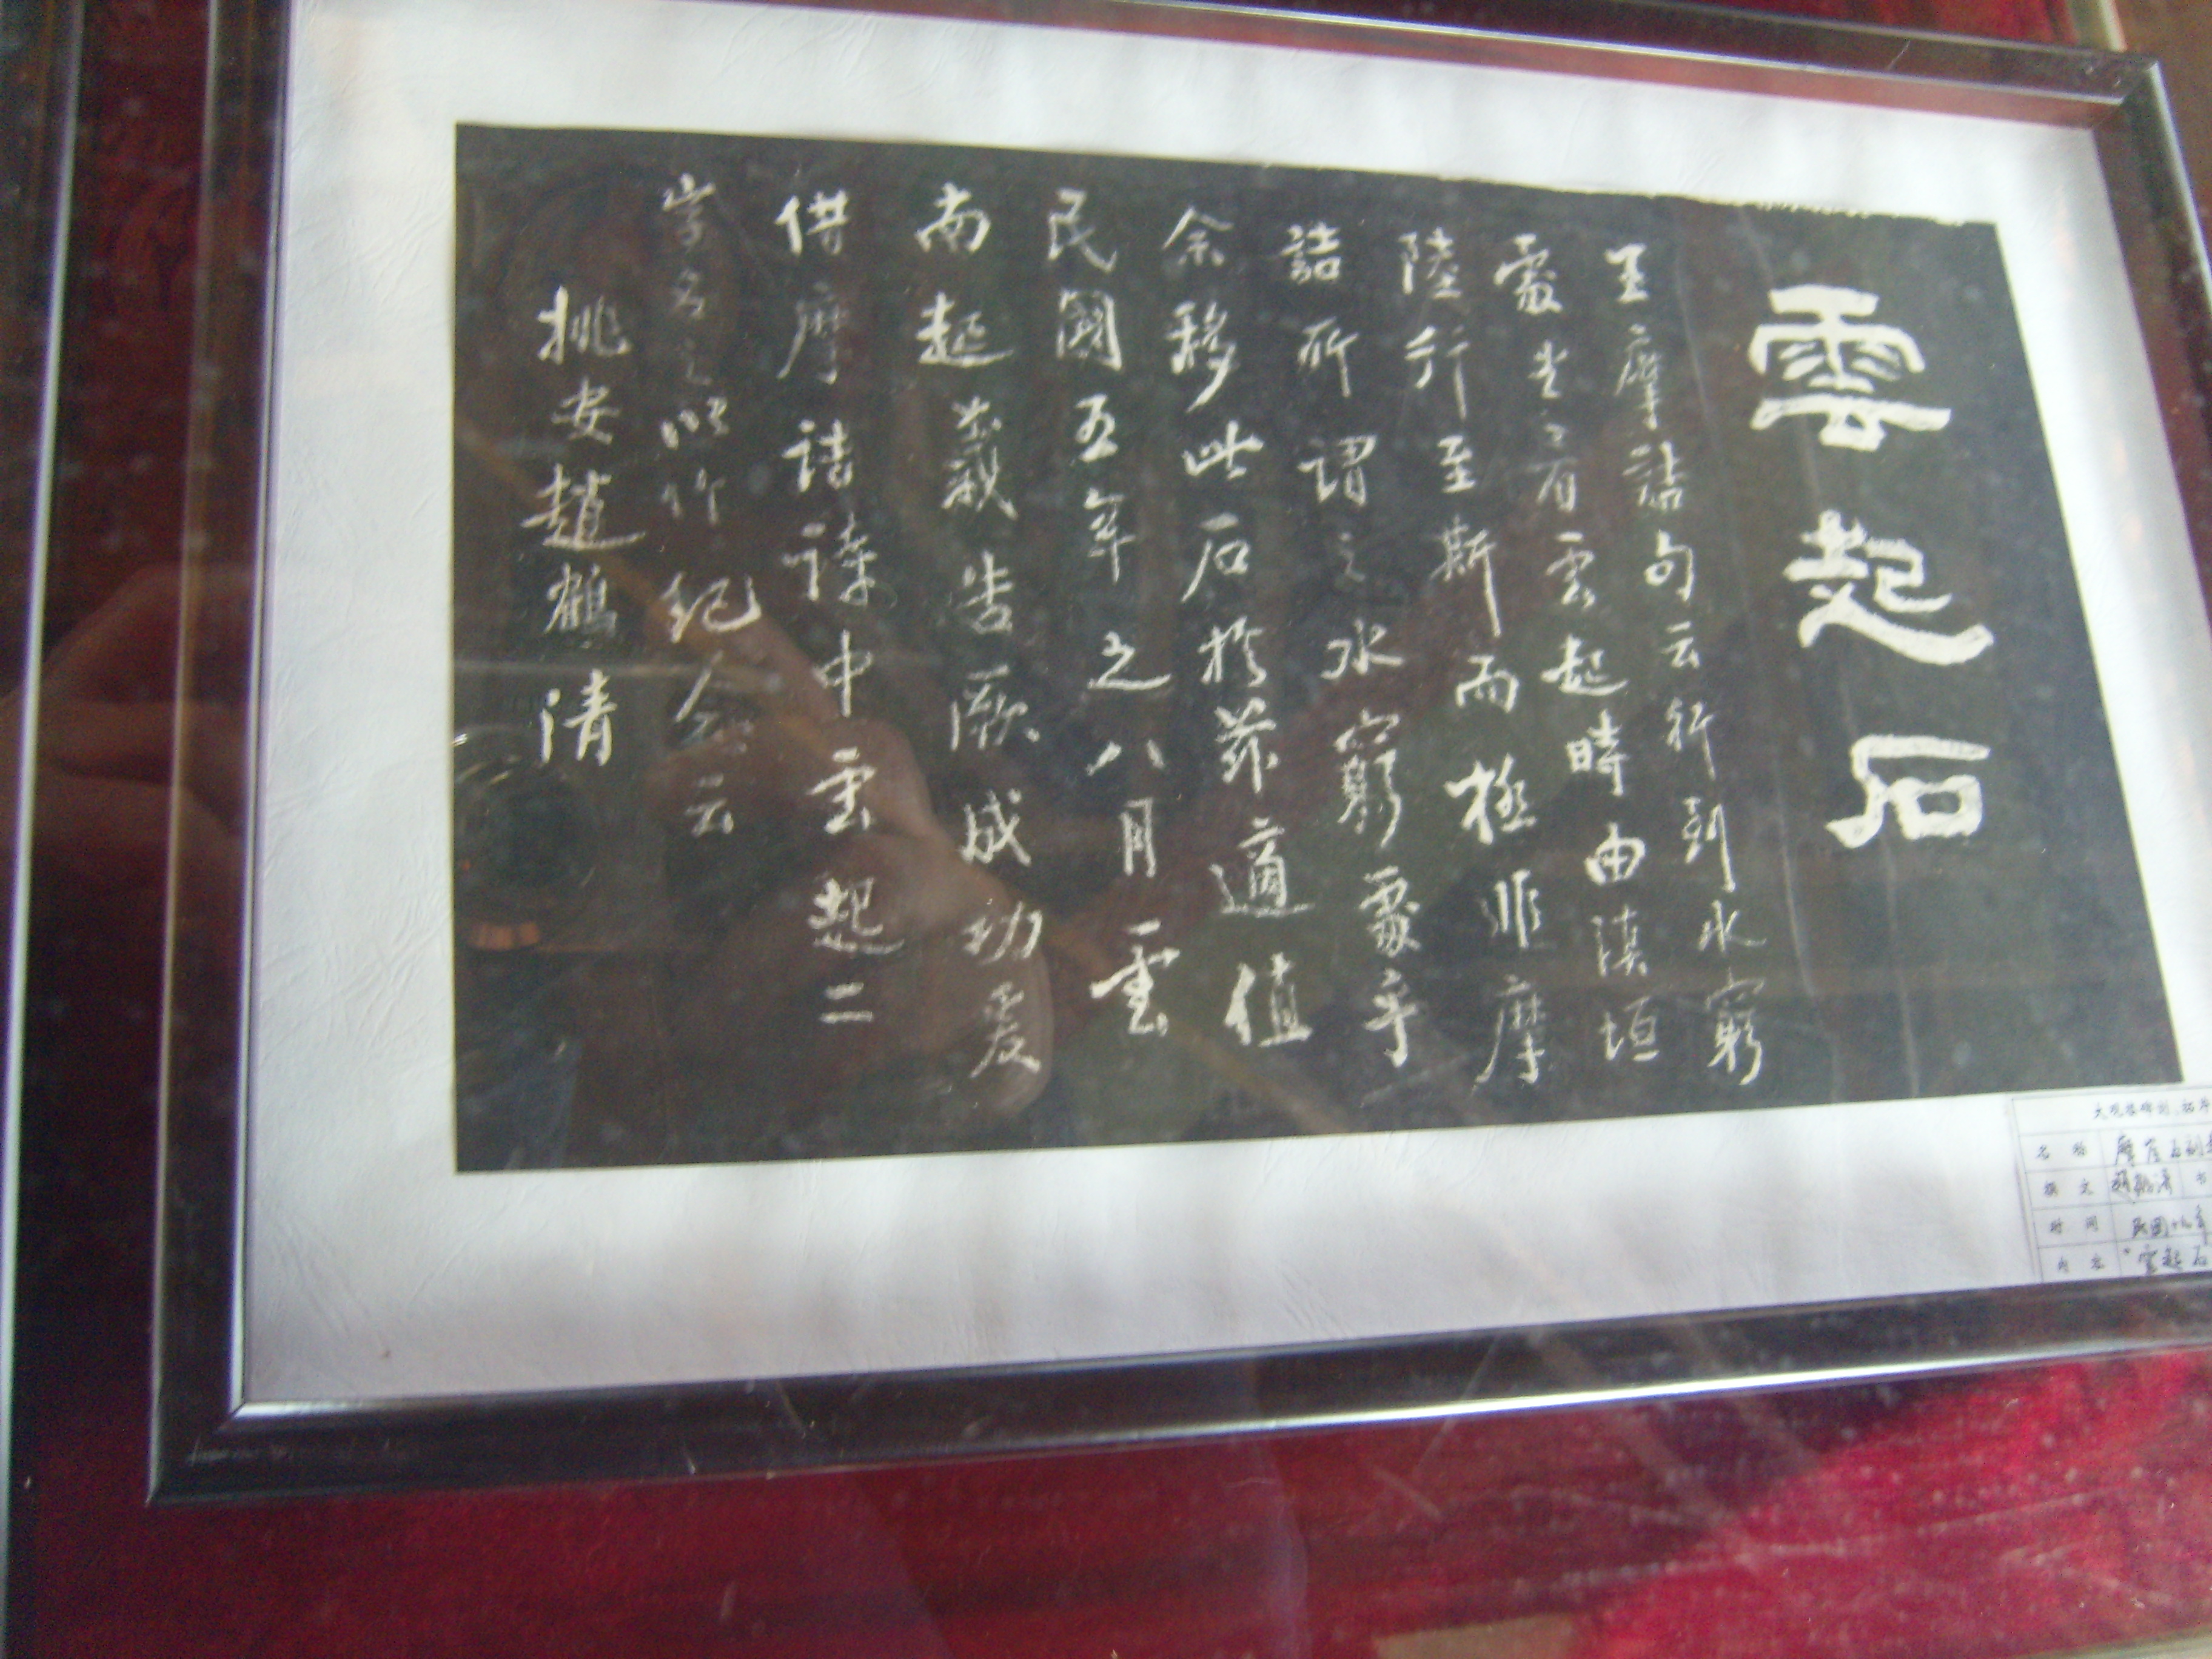 雲起石
王摩詰句云行到水窮
處坐看雲起時由漢垣
陸行至斯而極非摩
詰所謂之水窮處乎
余移此石於茲適值
民國五年之八月雲
南起義告厥成功爰
借摩詰詩中雲起二
字名之以作紀念云
姚安趙鶴清
大观楼碑刻、拓片
名称 摩崖石刻
撰文 趙鶴清 书
时间 民国十九年
内容 "雲起石